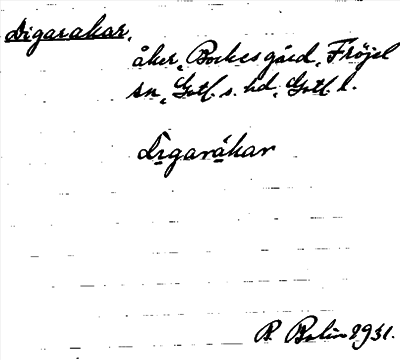 Digarakar,
åker, Bockes gård, Fröjel
sn, Gotl. s. hd, Gotl. l.
digaråkar
R. Bolin 1931.